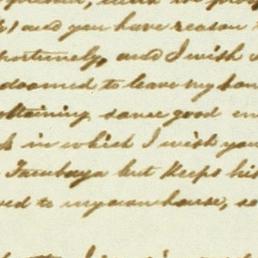 and you have reason
and I wish
doomed to leave my
obtaining some good
in which I wish you
Tacubaya but keeps his
to my own house, so